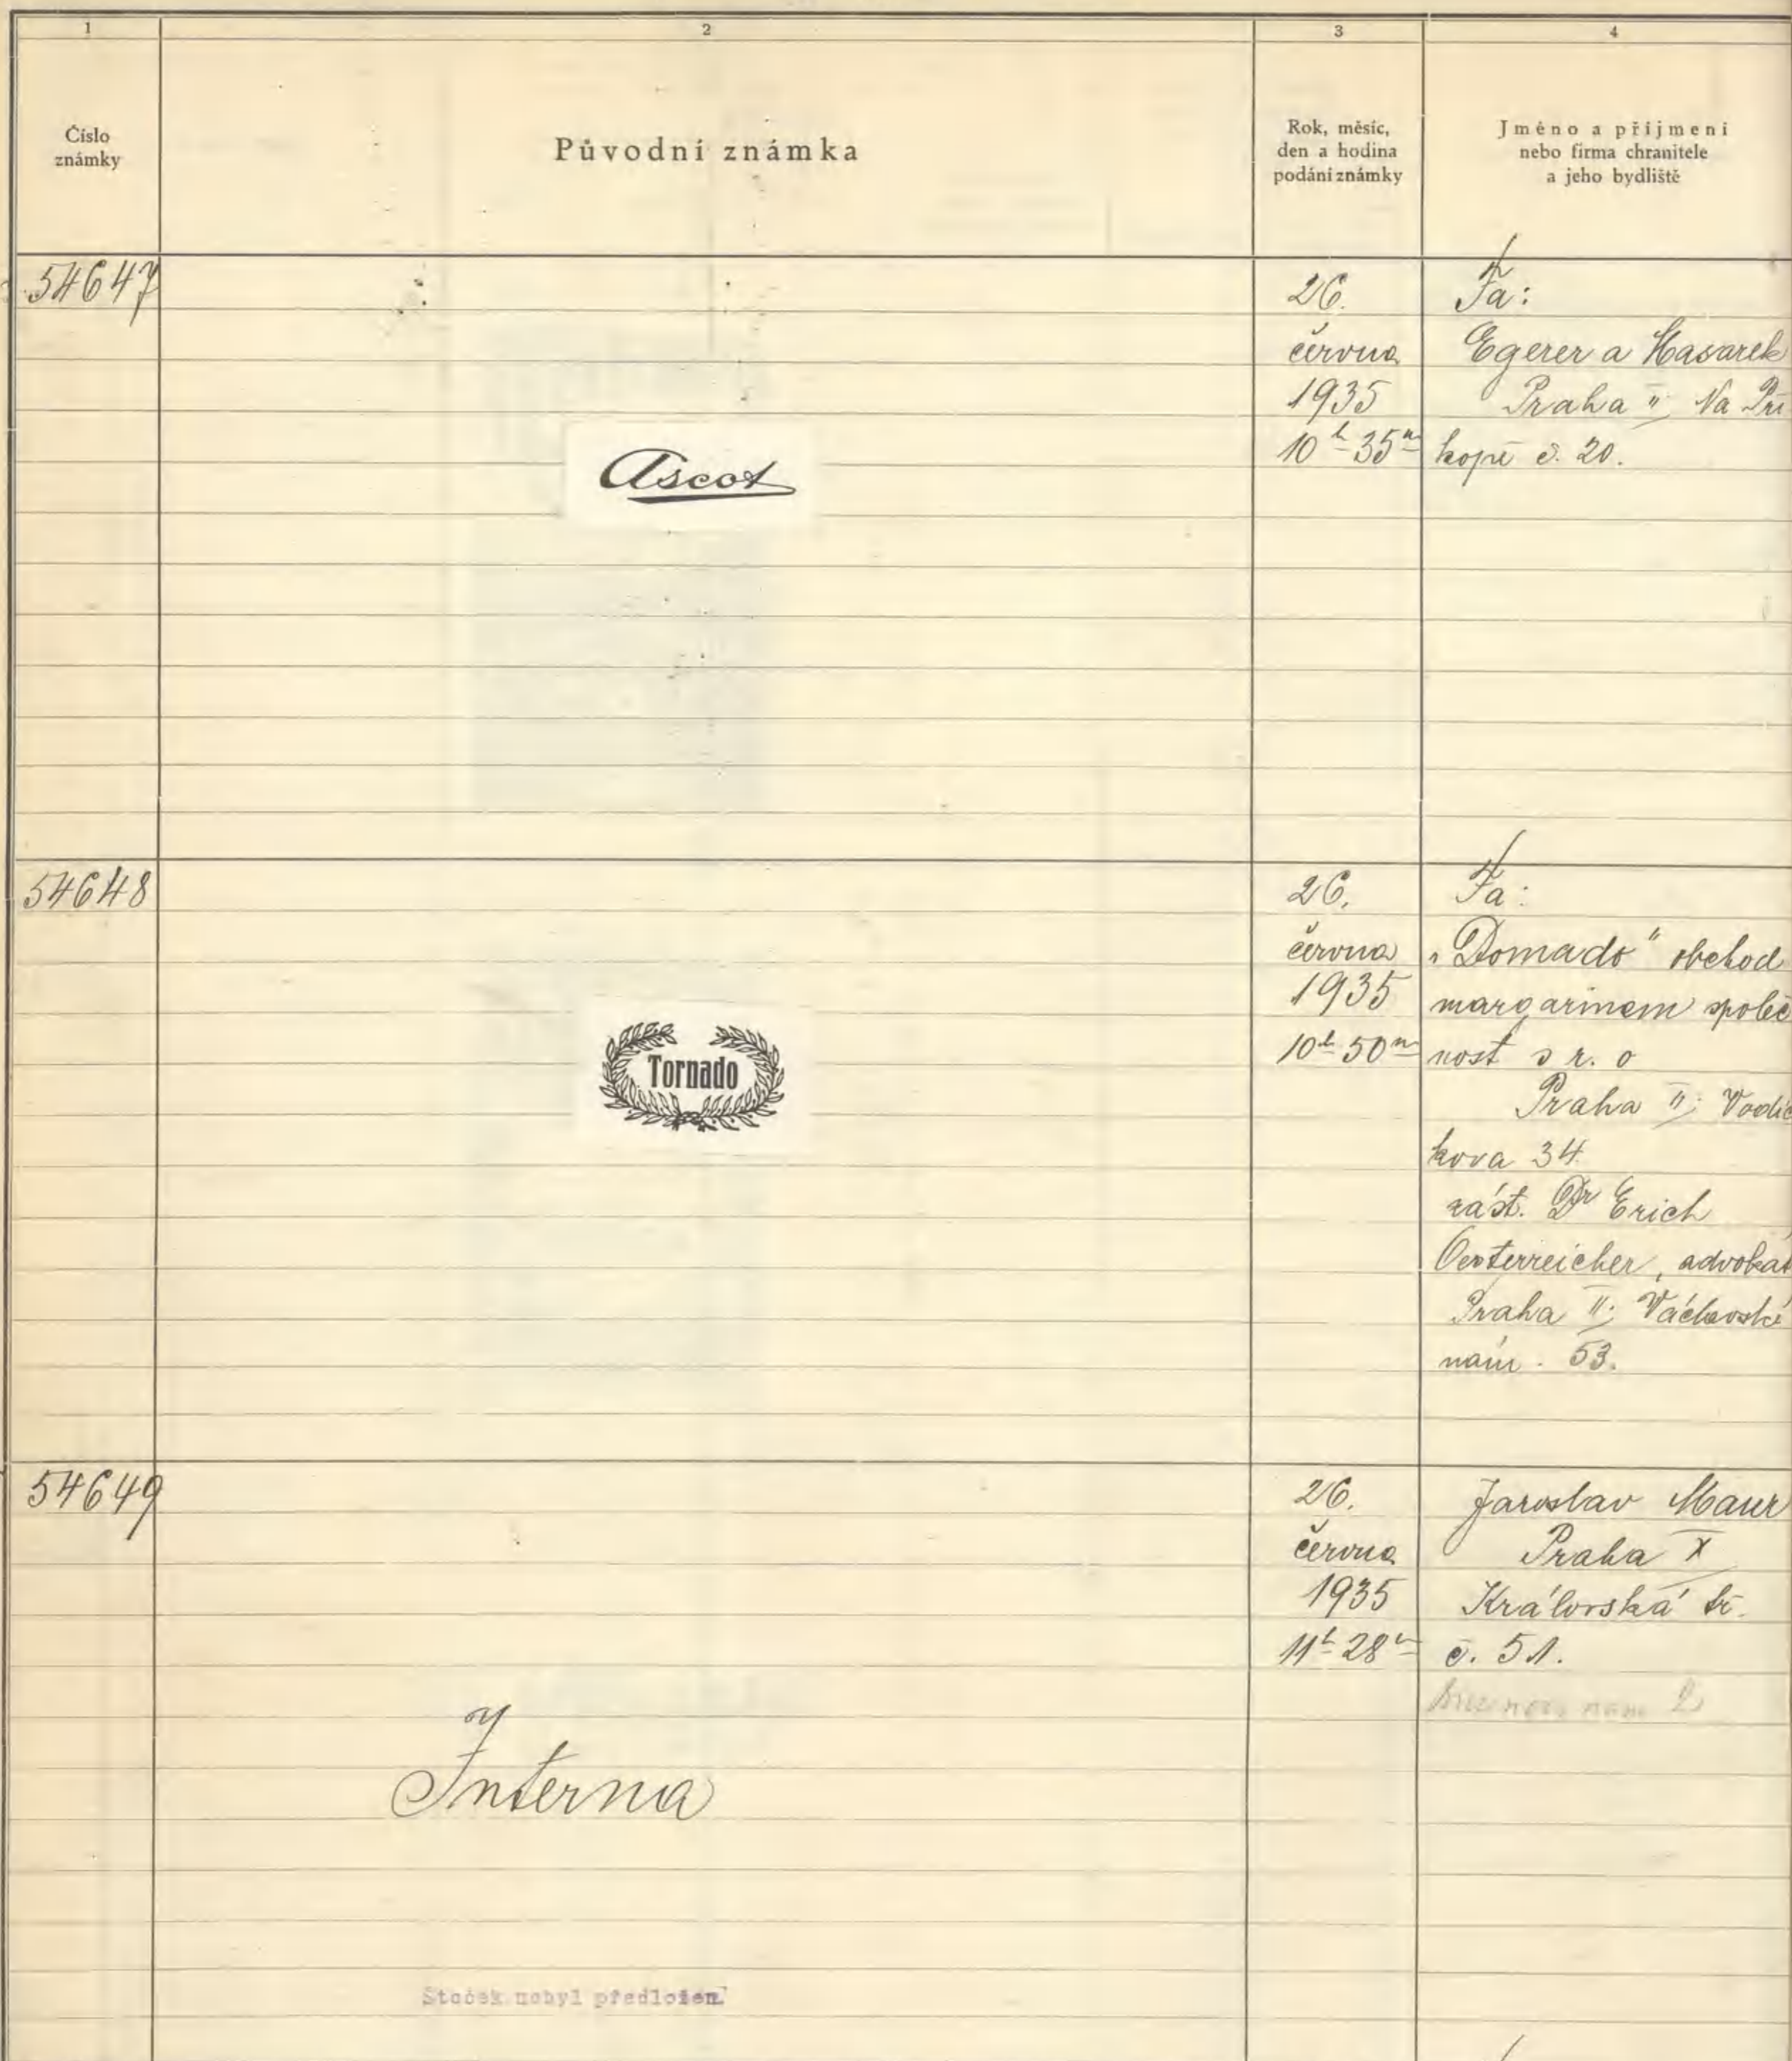 1
2
3
4
Číslo
známky
Původní známka
Rok, měsíc,
den a hodina
podání známky
Jméno a příjmení
nebo firma chranitele
a jeho bydliště
54647
Ascot
26.
června
1935
10h 35m
Fa:
Egerer a Hasarek
Praha II, Na Pří
kopě č. 20.
54648
Tornado
26.
června
1935
10h 50m
Fa:
„Domado" obchod
margarinem společ
nost s r. o
Praha II; Vodič
kova 34
zást. Dr Erich
Oesterreicher, advokát
Praha II; Václavské
nám. 53.
54649
Interna
Štoček nebyl předložen.
26.
června
1935
11h 28m
Jaroslav Maur
Praha X
Královská tř.
č. 51.
nám 2